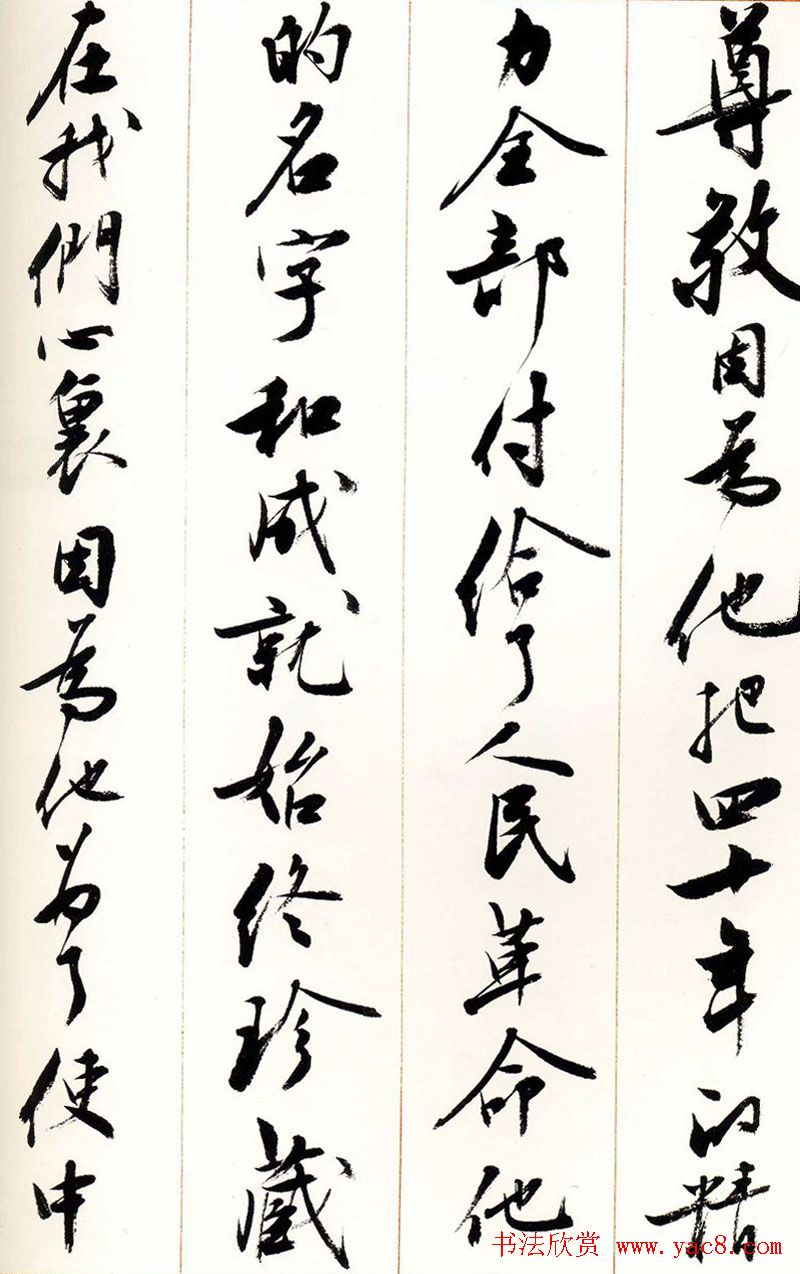 尊敬因為他把四十年的精
力全部付给了人民革命他
的名字和成就始终珍藏
在我們心裏因為他為了使中
书法欣赏 www.yac8.com